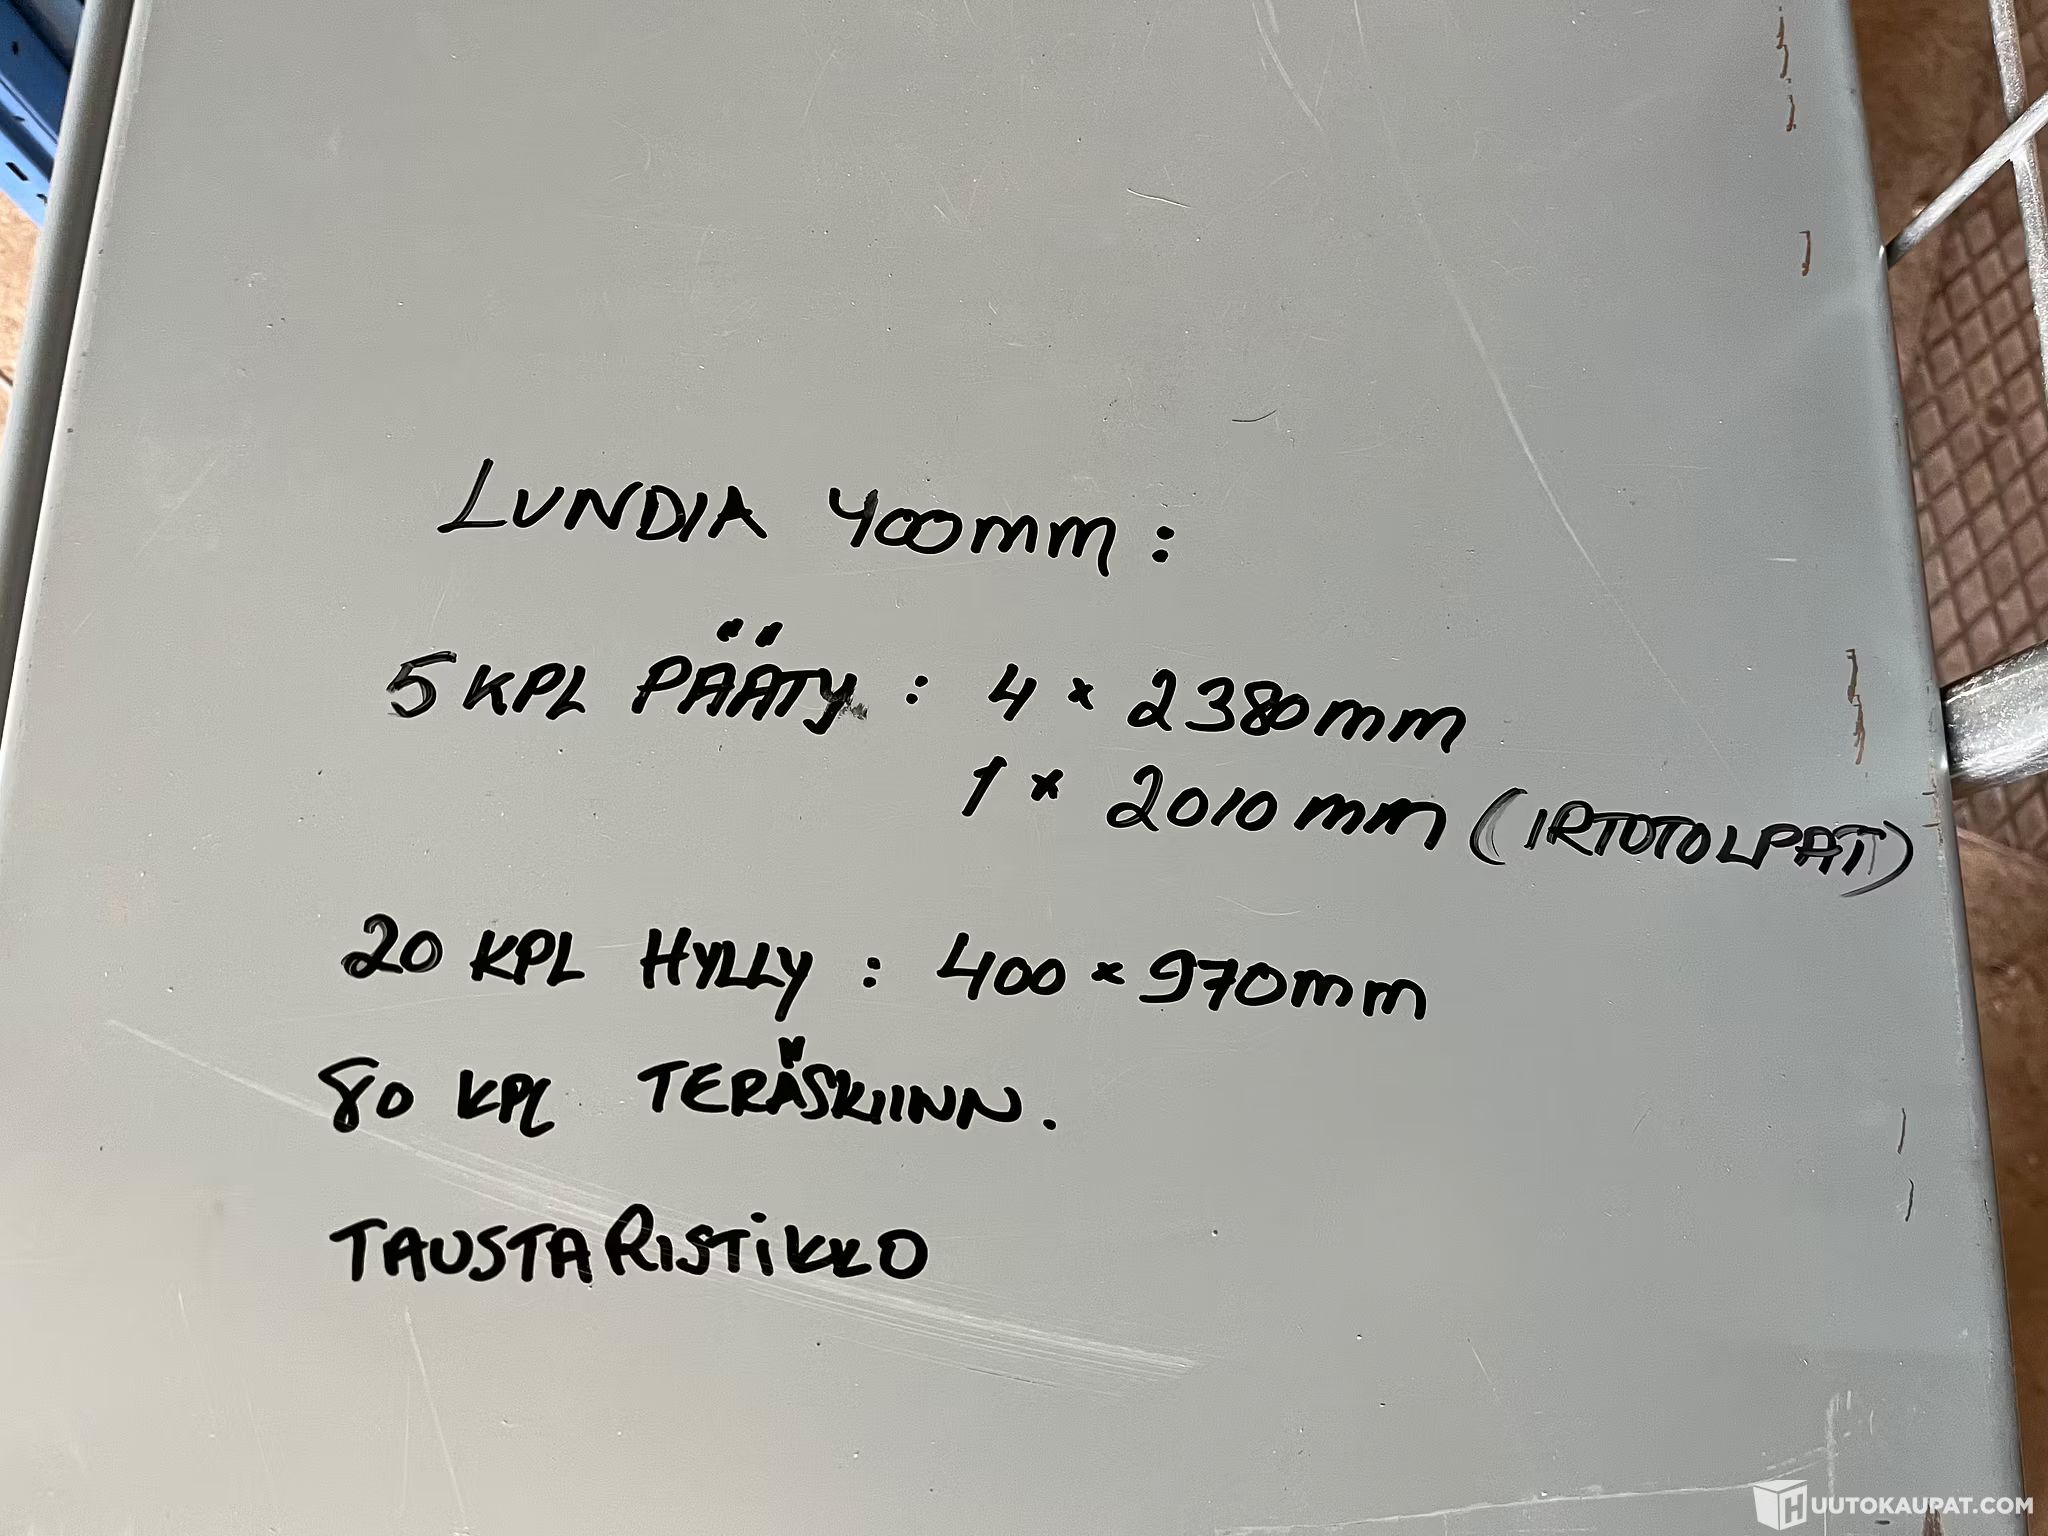 LUNDIA 400mm:
5 KPL PÄÄTY: 4 × 2380mm
1 × 2010mm (IRTOTOLPAT)
20 KPL HYLLY: 400 × 970mm
80 KPL TERÄSKIINN.
TAUSTARISTIKKO
HUUTOKAUPAT.COM